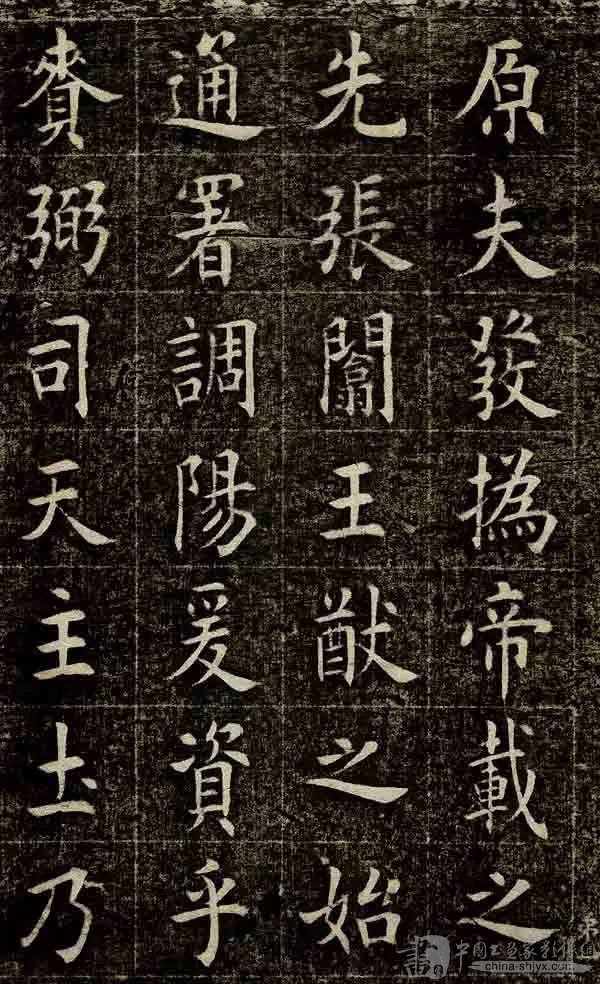 原夫發撝帝載之
先張闡王猷之始
通署調陽爰資乎
賚弼司天主土乃
china-shjyx.com